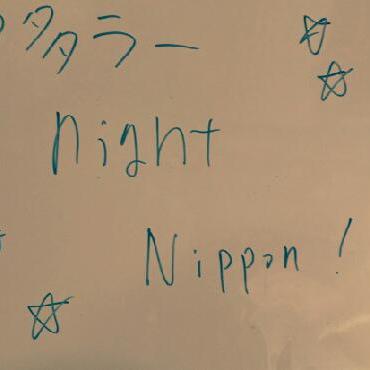 タタラー
night
Nippon!